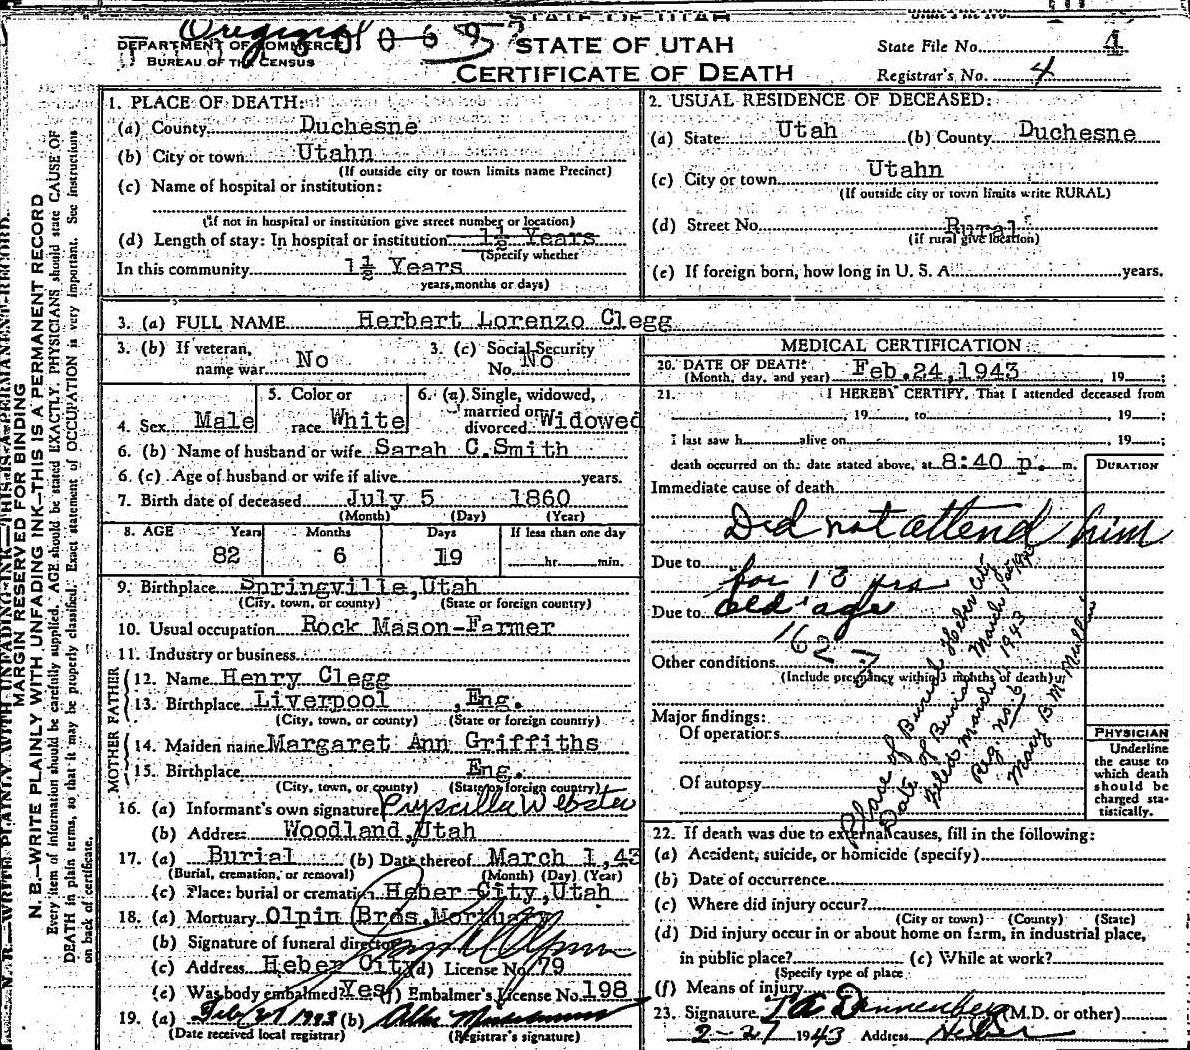 STATE OF UTAH
Original 0 0 6 5
DEPARTMENT OF COMMERCE
BUREAU OF THE CENSUS
STATE OF UTAH
CERTIFICATE OF DEATH
State File No. 4
Registrar's No. 4
MARGIN RESERVED FOR BINDING
N. B.—WRITE PLAINLY WITH UNFADING INK—THIS IS A PERMANENT RECORD
Every item of information should be carefully supplied. AGE should be stated EXACTLY. PHYSICIANS should state CAUSE OF
DEATH in plain terms, so that it may be properly classified. Exact statement of OCCUPATION is very important. See instructions
on back of certificate.
1. PLACE OF DEATH:
(a) County Duchesne
(b) City or town Utahn
(If outside city or town limits name Precinct)
(c) Name of hospital or institution:
(If not in hospital or institution give street number or location)
(d) Length of stay: In hospital or institution 1½ Years
(Specify whether
In this community 1½ Years
years, months or days)
2. USUAL RESIDENCE OF DECEASED:
(a) State Utah (b) County Duchesne
(c) City or town Utahn
(If outside city or town limits write RURAL)
(d) Street No. Rural
(if rural give location)
(e) If foreign born, how long in U. S. A. years.
3. (a) FULL NAME Herbert Lorenzo Clegg
3. (b) If veteran, name war No
3. (c) Social Security No. No
4. Sex Male
5. Color or race White
6. (a) Single, widowed, married or divorced Widowed
6. (b) Name of husband or wife Sarah C. Smith
6. (c) Age of husband or wife if alive years.
7. Birth date of deceased July 5 1860
(Month) (Day) (Year)
8. AGE Years Months Days If less than one day
82 6 19 hr. min.
9. Birthplace Springville, Utah
(City, town, or county) (State or foreign country)
10. Usual occupation Rock Mason-Farmer
11. Industry or business
FATHER
12. Name Henry Clegg
13. Birthplace Liverpool, Eng.
(City, town, or county) (State or foreign country)
MOTHER
14. Maiden name Margaret Ann Griffiths
15. Birthplace Eng.
(City, town, or county) (State or foreign country)
16. (a) Informant's own signature Pryscilla Webster
(b) Address Woodland, Utah
17. (a) Burial (b) Date thereof March 1, 43
(Burial, cremation, or removal) (Month) (Day) (Year)
(c) Place: burial or cremation Heber City, Utah
18. (a) Mortuary Olpin Bros. Mortuary
(b) Signature of funeral director
(c) Address Heber City (d) License No. 79
(e) Was body embalmed? Yes (f) Embalmer's License No. 198
19. (a) Feb 27 1943 (b)
(Date received local registrar) (Registrar's signature)
MEDICAL CERTIFICATION
20. DATE OF DEATH: Feb. 24, 1943, 19 ;
(Month, day, and year)
21. I HEREBY CERTIFY, That I attended deceased from
, 19 to , 19 ;
I last saw h alive on , 19 ;
death occurred on the date stated above, at 8:40 p. m.
DURATION
Immediate cause of death
Did not attend him
Due to for 13 yrs
Due to old age
162
Other conditions
(Include pregnancy within 3 months of death)
Major findings:
Of operations
Of autopsy
PHYSICIAN
Underline
the cause to
which death
should be
charged sta-
tistically.
Place of Burial Heber City
Date of Burial March 1st 1943
Filed March 1, 1943
Reg. no. 6
Mary B. McMullin
22. If death was due to external causes, fill in the following:
(a) Accident, suicide, or homicide (specify)
(b) Date of occurrence
(c) Where did injury occur?
(City or town) (County) (State)
(d) Did injury occur in or about home on farm, in industrial place,
in public place? (e) While at work?
(Specify type of place
(f) Means of injury
23. Signature T A Dannenberg (M.D. or other)
2-27 1943 Address Heber